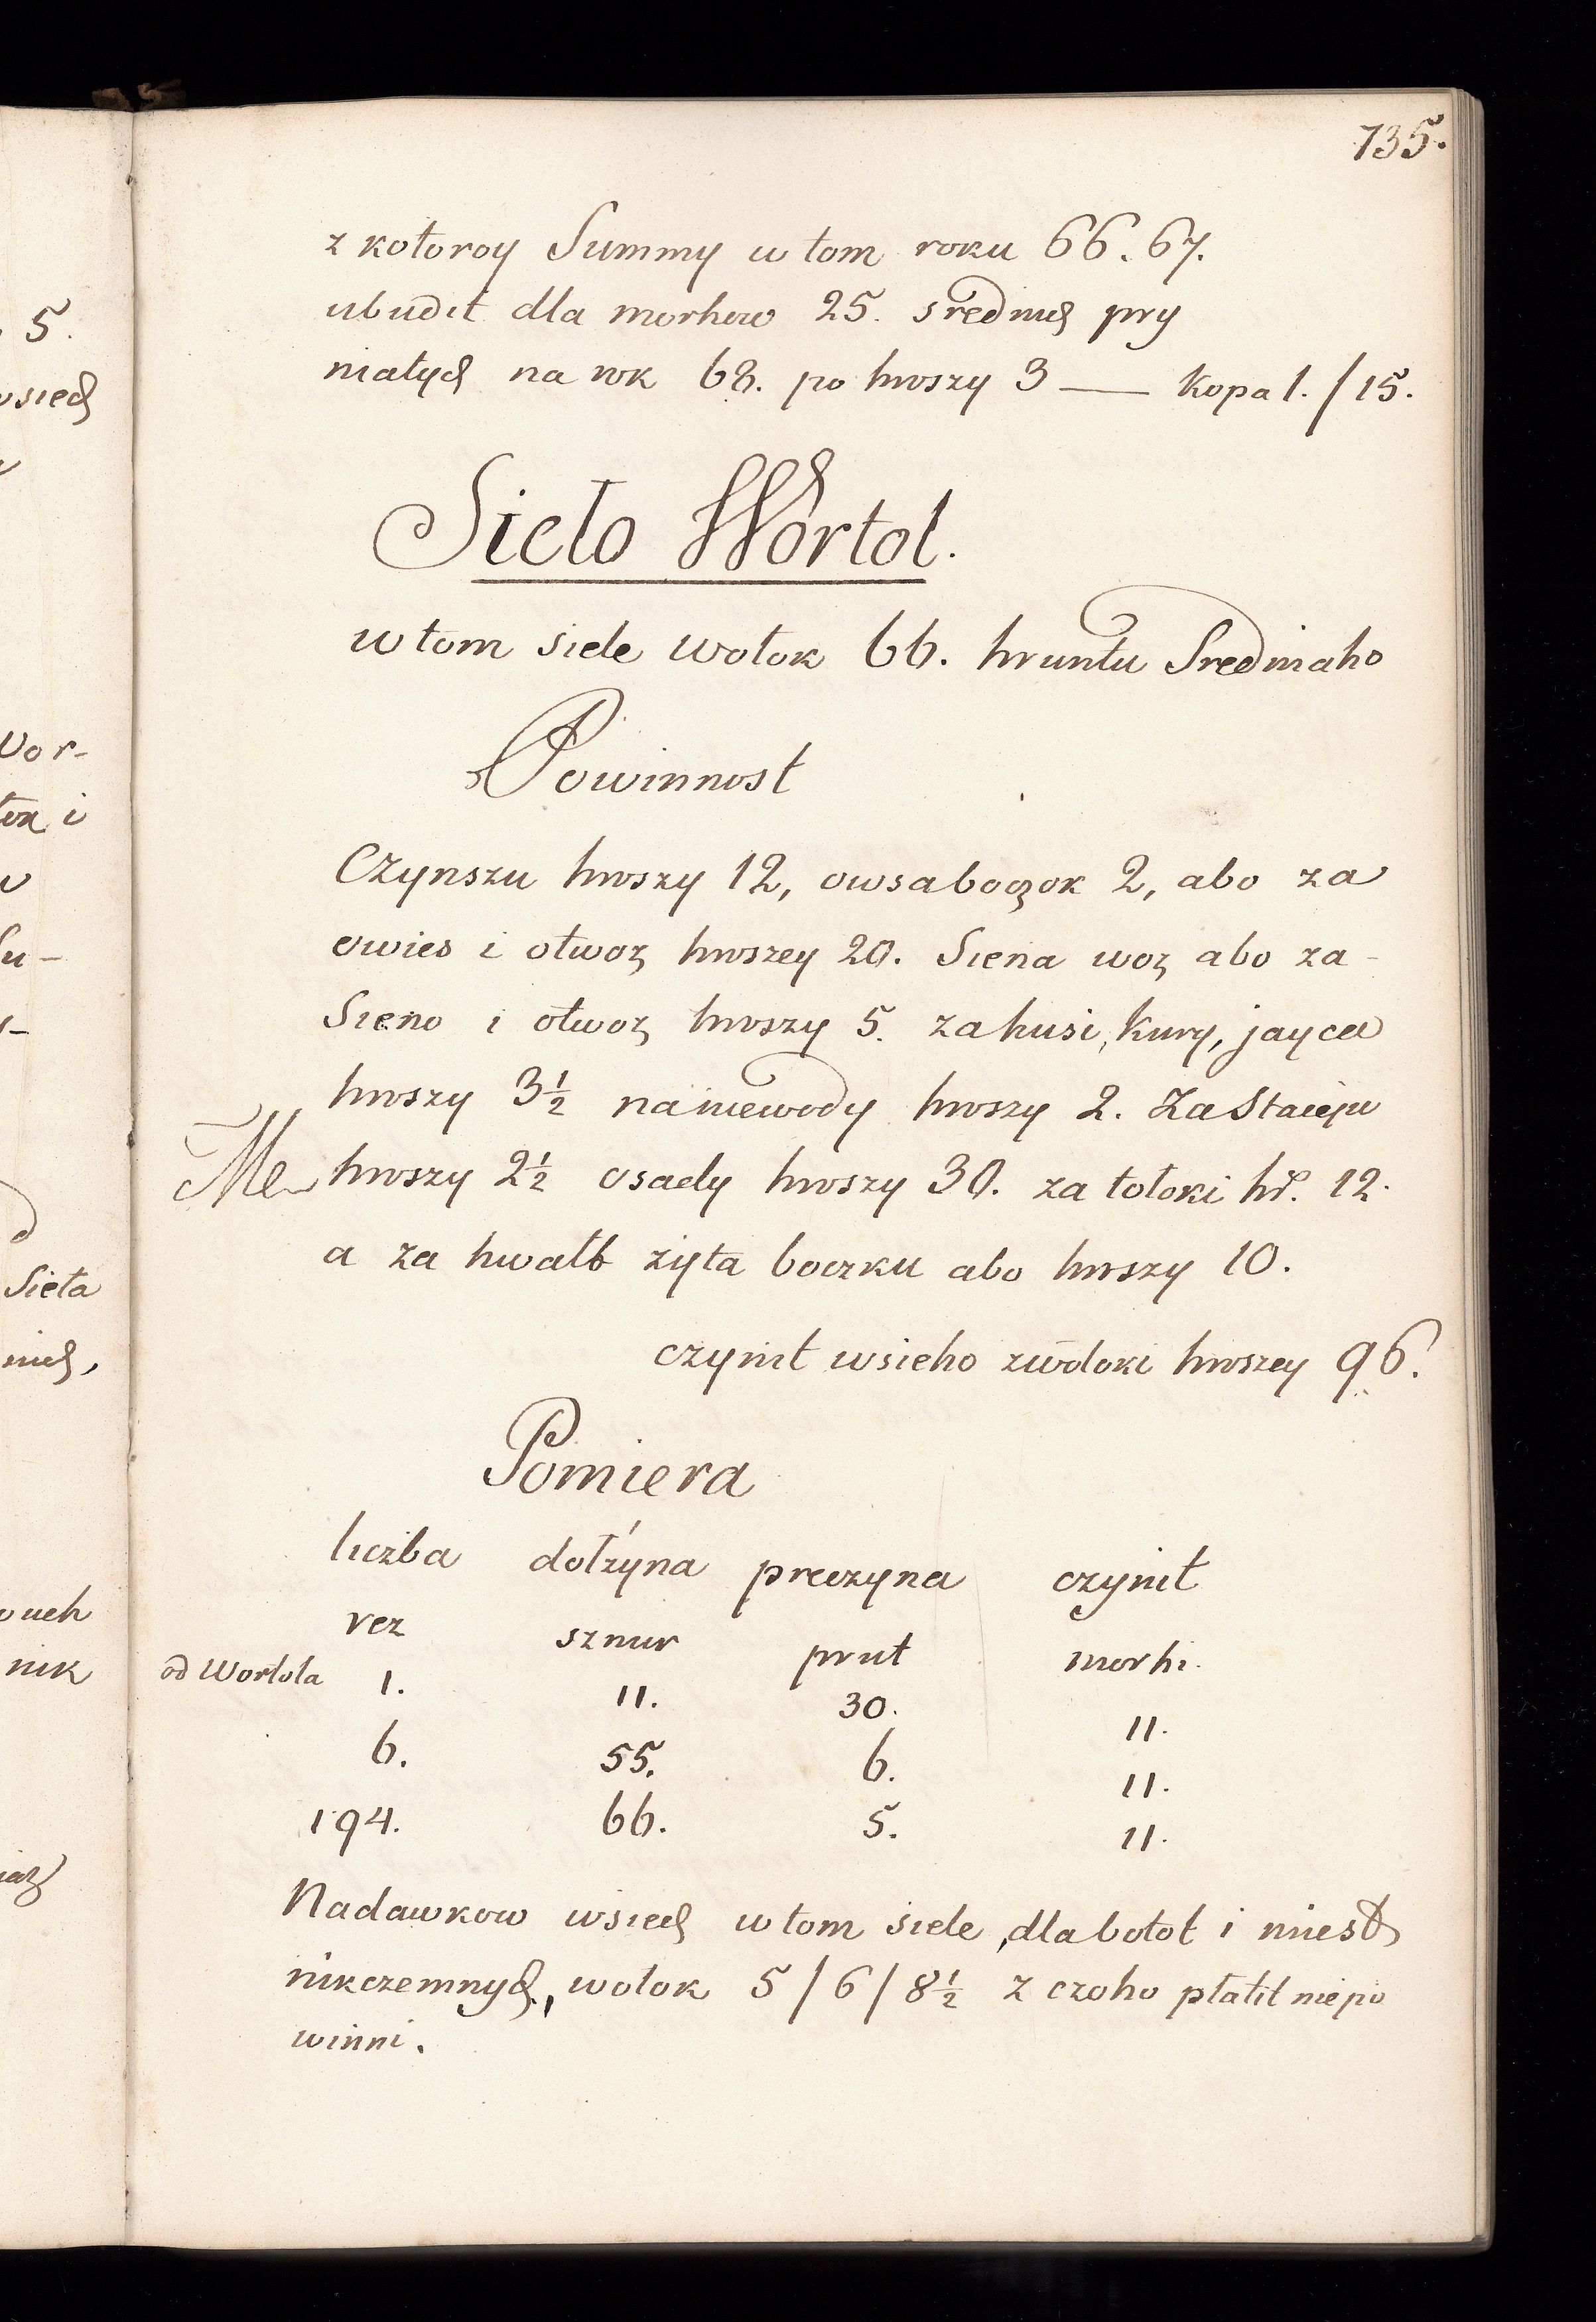 735.
z kotoroy Summy w tom roku 66. 67.
ubudit dla morhow 25. srednich pry
niatych na rok 68. po hroszy 3 — kopa 1. / 15.
Sieło Wortol.
w tom siele wołok 66. hruntu Sredniaho
Powinnost
Czynszu hroszy 12, owsa boczok 2, abo za
owies i otwoz hroszey 20. Siena woz abo za-
Sieno i otwoz hroszy 5. za husi, kury, jayca
hroszy 3½ na niewody hroszy 2. Za Stacyju
hroszy 2½ osady hroszy 30. za tołoki hr. 12.
a za hwałt żyta boczku abo hroszy 10.
czynit wsieho z wołoki hroszey 96.
Pomiera
liczba dołżyna preczyna czynit
rez sznur prut morhi.
od Wortola 1. 11. 30. 11.
6. 55. 6. 11.
194. 66. 5. 11.
Nadawkow wsiech w tom siele, dla bołot i miest
nikczemnych, wołok 5 / 6 / 8½ z czoho płatit nie po
winni.
5.
Wor-
Sieła
nik